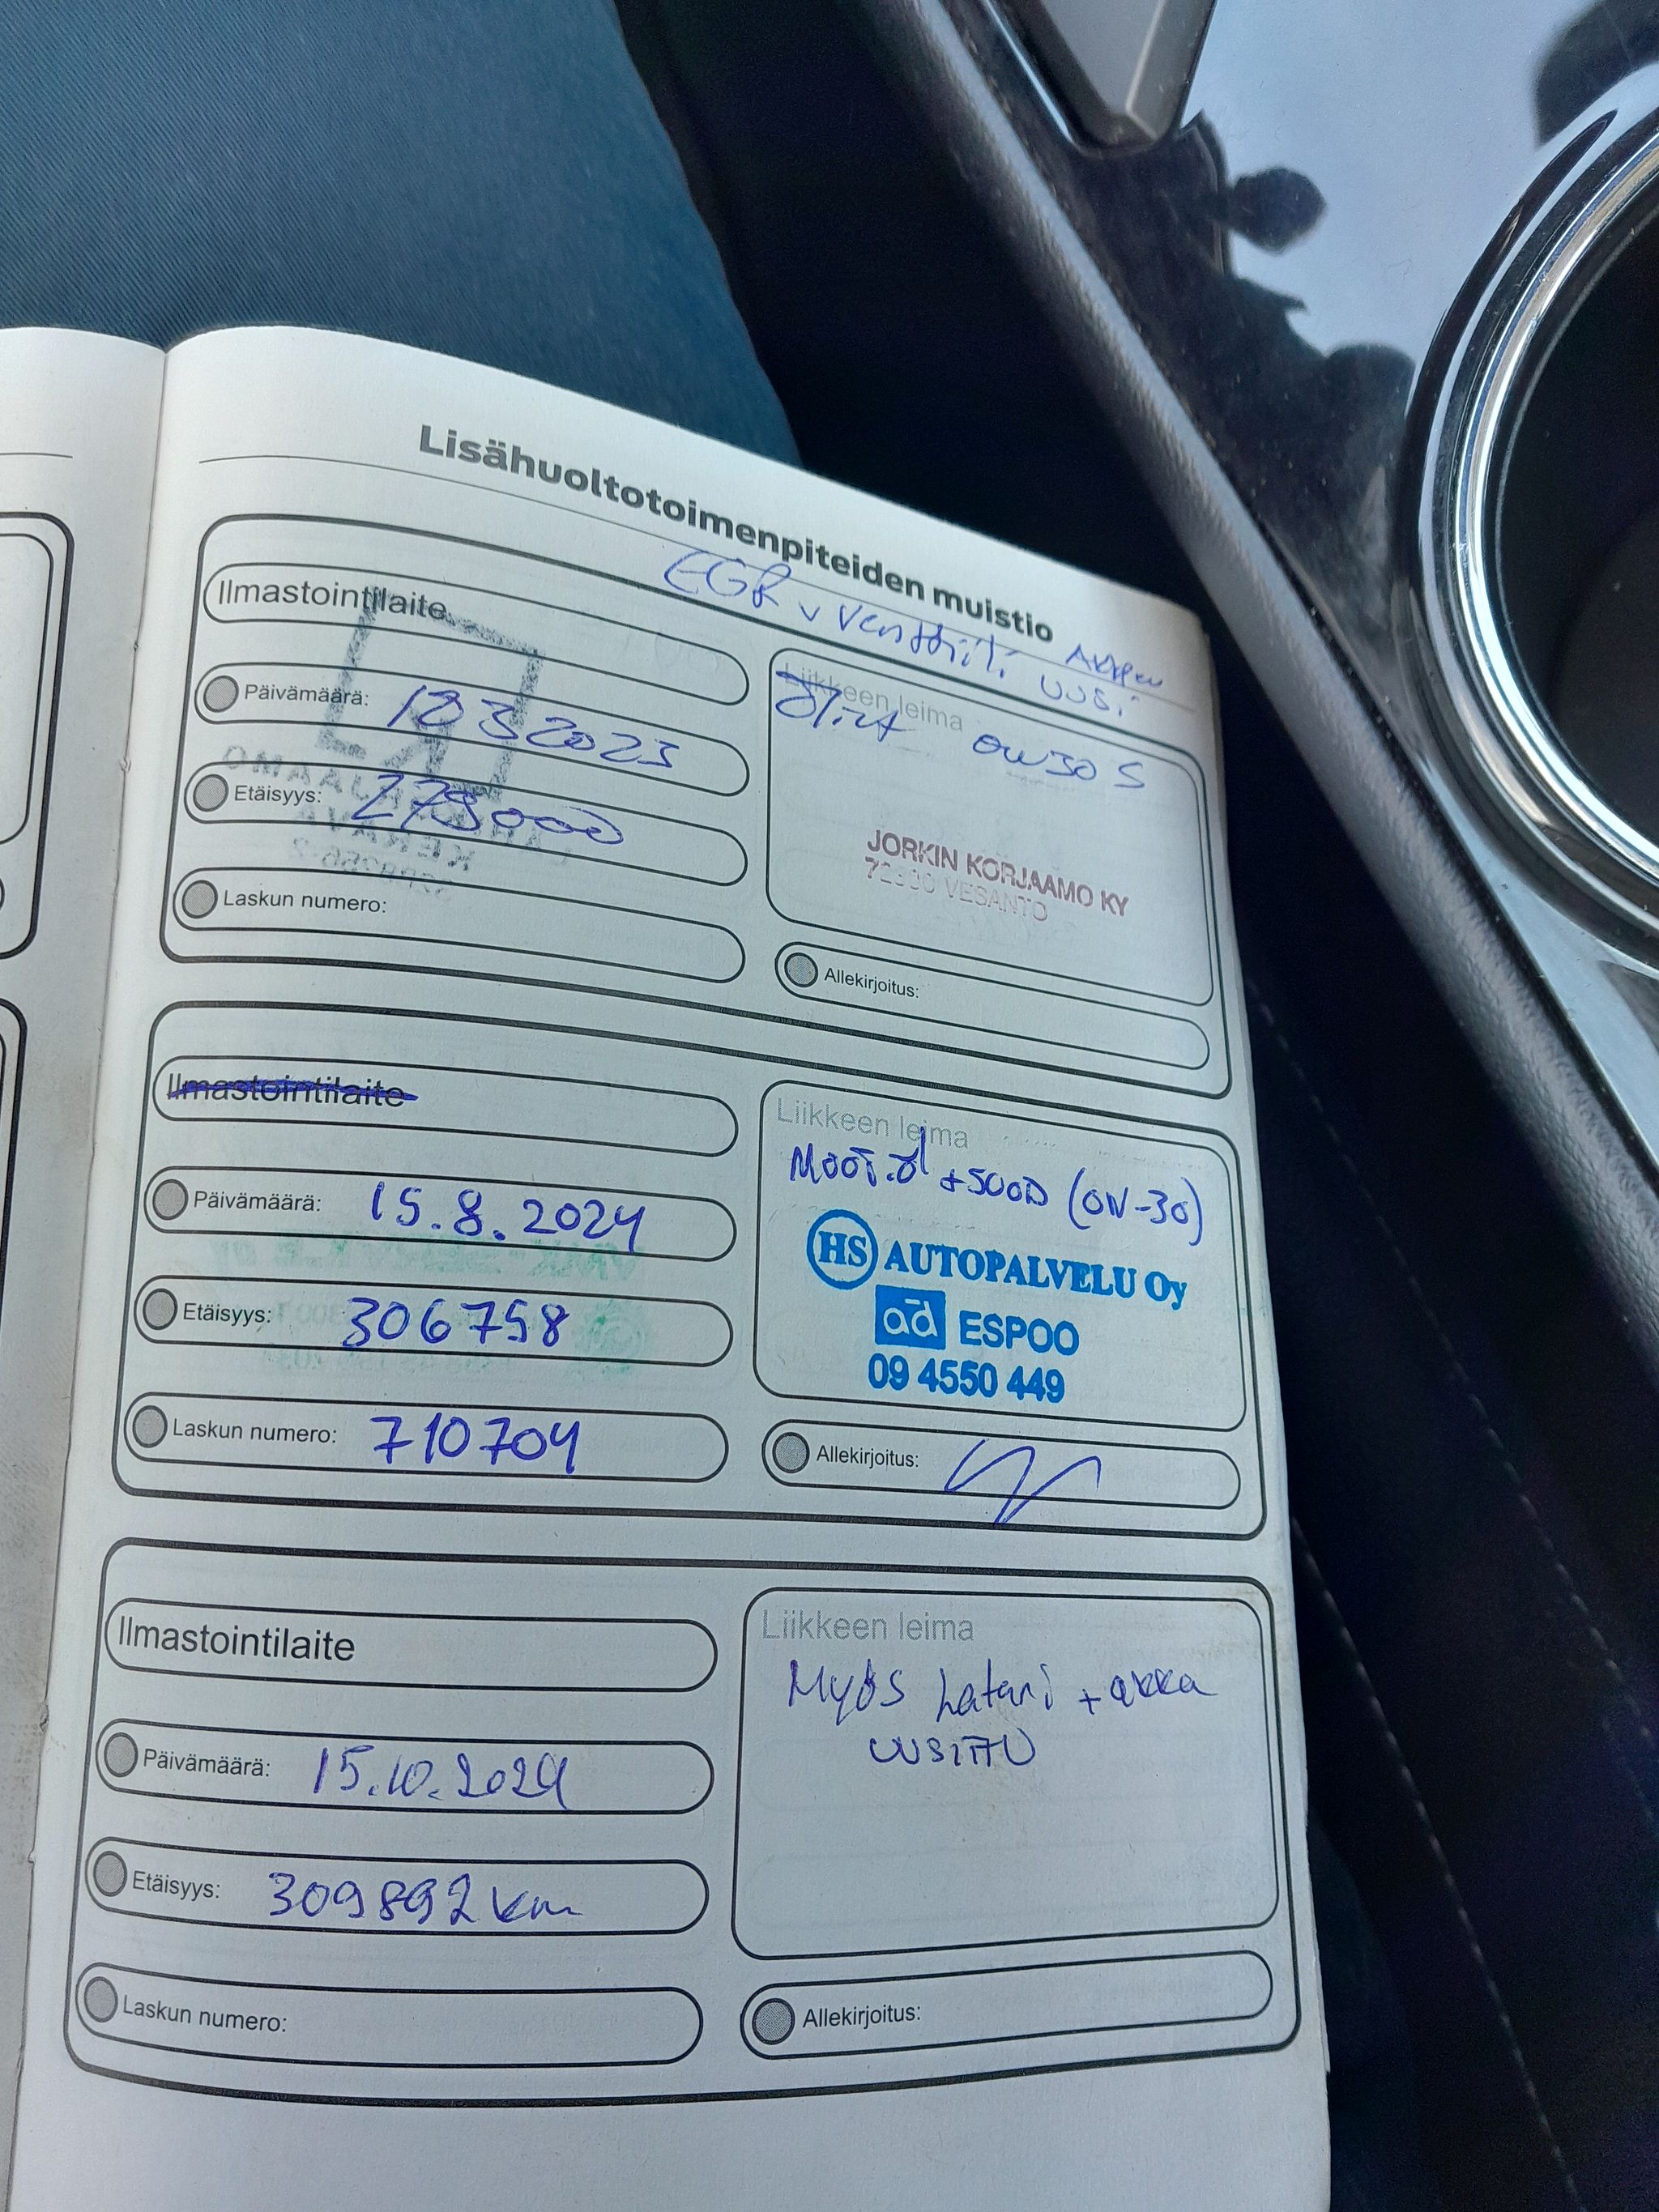 Lisähuoltotoimenpiteiden muistio
EGR v Venttiili uusi
Ilmastointilaite
Päivämäärä: 18 3 2023
Etäisyys: 278000
Laskun numero:
Liikkeen leima
Öljyt 0W30 S
JORKIN KORJAAMO KY
72300 VESANTO
Allekirjoitus:
Ilmastointilaite
Päivämäärä: 15.8.2024
Etäisyys: 306758
Laskun numero: 710704
Liikkeen leima
(0W-30)
HS AUTOPALVELU Oy
ad ESPOO
09 4550 449
Allekirjoitus:
Ilmastointilaite
Päivämäärä: 15.10.2024
Etäisyys: 309892 km
Laskun numero:
Liikkeen leima
Myös Laturi + akka
UUSITTU
Allekirjoitus: